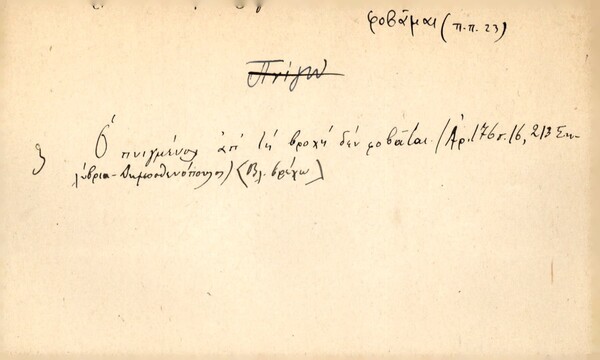 φοβᾶμαι (π.π. 23)
Πνίγω
Ὁ πνιγμένος ἀπ' τή βροχή δέν φοβᾶται. (Ἀρ. 176 σ. 16, 213 Ση-
λύβρια - Δημοσθενόπουλος) (Βλ. βρέχω)